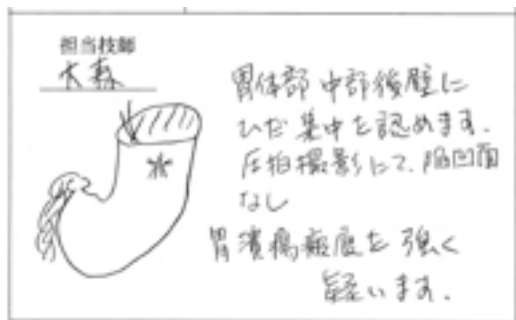 担当技師
大森
胃体部中部後壁に
ひだ集中を認めます.
圧拍撮影にて、陥凹面
なし
胃潰瘍瘢痕を強く
疑います.